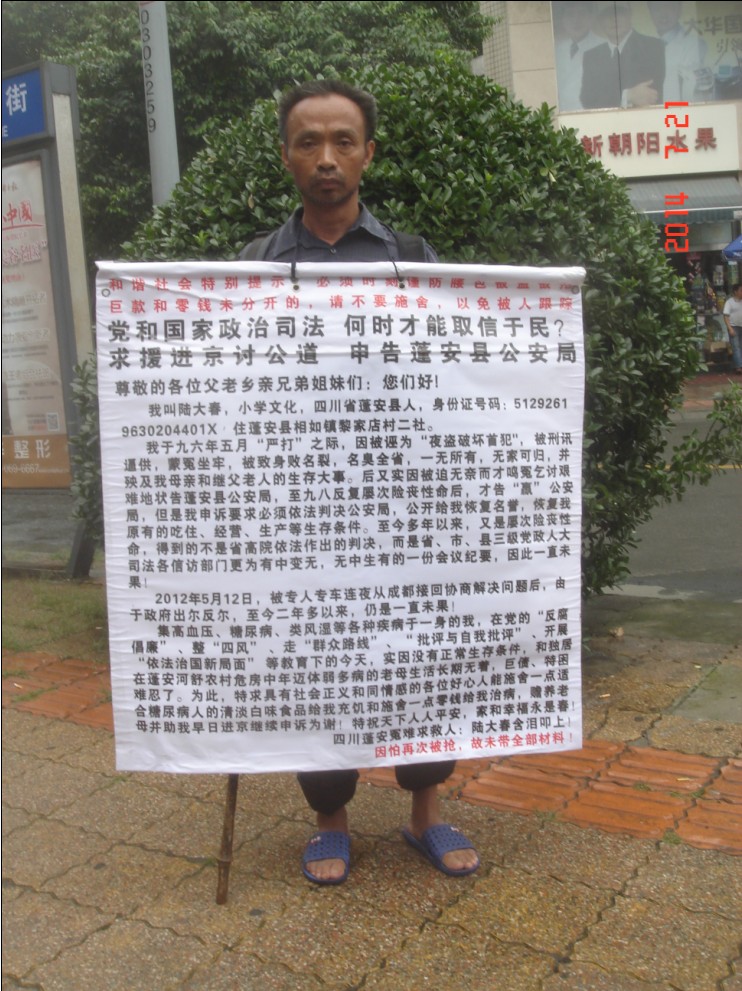 街
0303259
中国
大华国
新朝阳水果
2014 7 21
和谐社会特别提示
巨款和零钱未分开的，请不要施舍，以免被人跟踪
党和国家政治司法 何时才能取信于民？
求援进京讨公道 申告蓬安县公安局
尊敬的各位父老乡亲兄弟姐妹们：您们好！
我叫陆大春，小学文化，四川省蓬安县人，身份证号码：5129261
9630204401X 住蓬安县相如镇黎家店村二社。
我于九六年五月“严打”之际，因被诬为“夜盗破坏首犯”，被刑讯
逼供，蒙冤坐牢，被致身败名裂，名臭全省，一无所有，无家可归，并
殃及我母亲和继父老人的生存大事。后又实因被迫无奈而才鸣冤乞讨艰
难地状告蓬安县公安局，至九八反复屡次险丧性命后，才告“赢”公安
局，但是我申诉要求必须依法判决公安局，公开给我恢复名誉，恢复我
原有的吃住、经营、生产等生存条件。至今多年以来，又是屡次险丧性
命，得到的不是省高院依法作出的判决，而是省、市、县三级党政人大
司法各信访部门更为有中变无，无中生有的一份会议纪要，因此一直未
果！
2012年5月12日，被专人专车连夜从成都接回协商解决问题后，由
于政府出尔反尔，至今二年多以来，仍是一直未果！
集高血压、糖尿病、类风湿等各种疾病于一身的我，在党的“反腐
倡廉”、整“四风”、走“群众路线”、“批评与自我批评”、开展
“依法治国新局面”等教育下的今天，实因没有正常生存条件，和独居
在蓬安河舒农村危房中年迈体弱多病的老母生活长期无着，巨债、特困
难忍了。为此，特求具有社会正义和同情感的各位好心人能施舍一点适
合糖尿病人的清淡白味食品给我充饥和施舍一点零钱给我治病，赡养老
母并助我早日进京继续申诉为谢！特祝天下人人平安，家和幸福永是春！
四川蓬安冤难求救人：陆大春含泪叩上！
因怕再次被抢，故未带全部材料！